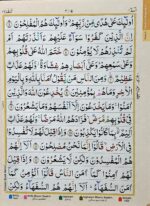 أُولَٰئِكَ عَلَىٰ هُدًى مِّن رَّبِّهِمْ وَأُولَٰئِكَ هُمُ الْمُفْلِحُونَ
إِنَّ الَّذِينَ كَفَرُوا سَوَاءٌ عَلَيْهِمْ أَأَنذَرْتَهُمْ أَمْ
لَمْ تُنذِرْهُمْ لَا يُؤْمِنُونَ خَتَمَ اللَّهُ عَلَىٰ قُلُوبِهِمْ
وَعَلَىٰ سَمْعِهِمْ وَعَلَىٰ أَبْصَارِهِمْ غِشَاوَةٌ وَلَهُمْ عَذَابٌ
عَظِيمٌ وَمِنَ النَّاسِ مَن يَقُولُ آمَنَّا بِاللَّهِ وَبِالْيَوْمِ
الْآخِرِ وَمَا هُم بِمُؤْمِنِينَ يُخَادِعُونَ اللَّهَ وَالَّذِينَ آمَنُوا
وَمَا يَخْدَعُونَ إِلَّا أَنفُسَهُمْ وَمَا يَشْعُرُونَ فِي قُلُوبِهِم
مَّرَضٌ فَزَادَهُمُ اللَّهُ مَرَضًا وَلَهُمْ عَذَابٌ أَلِيمٌ بِمَا
كَانُوا يَكْذِبُونَ وَإِذَا قِيلَ لَهُمْ لَا تُفْسِدُوا فِي
الْأَرْضِ قَالُوا إِنَّمَا نَحْنُ مُصْلِحُونَ أَلَا إِنَّهُمْ
هُمُ الْمُفْسِدُونَ وَلَٰكِن لَّا يَشْعُرُونَ وَإِذَا قِيلَ
لَهُمْ آمِنُوا كَمَا آمَنَ النَّاسُ قَالُوا أَنُؤْمِنُ كَمَا
آمَنَ السُّفَهَاءُ أَلَا إِنَّهُمْ هُمُ السُّفَهَاءُ